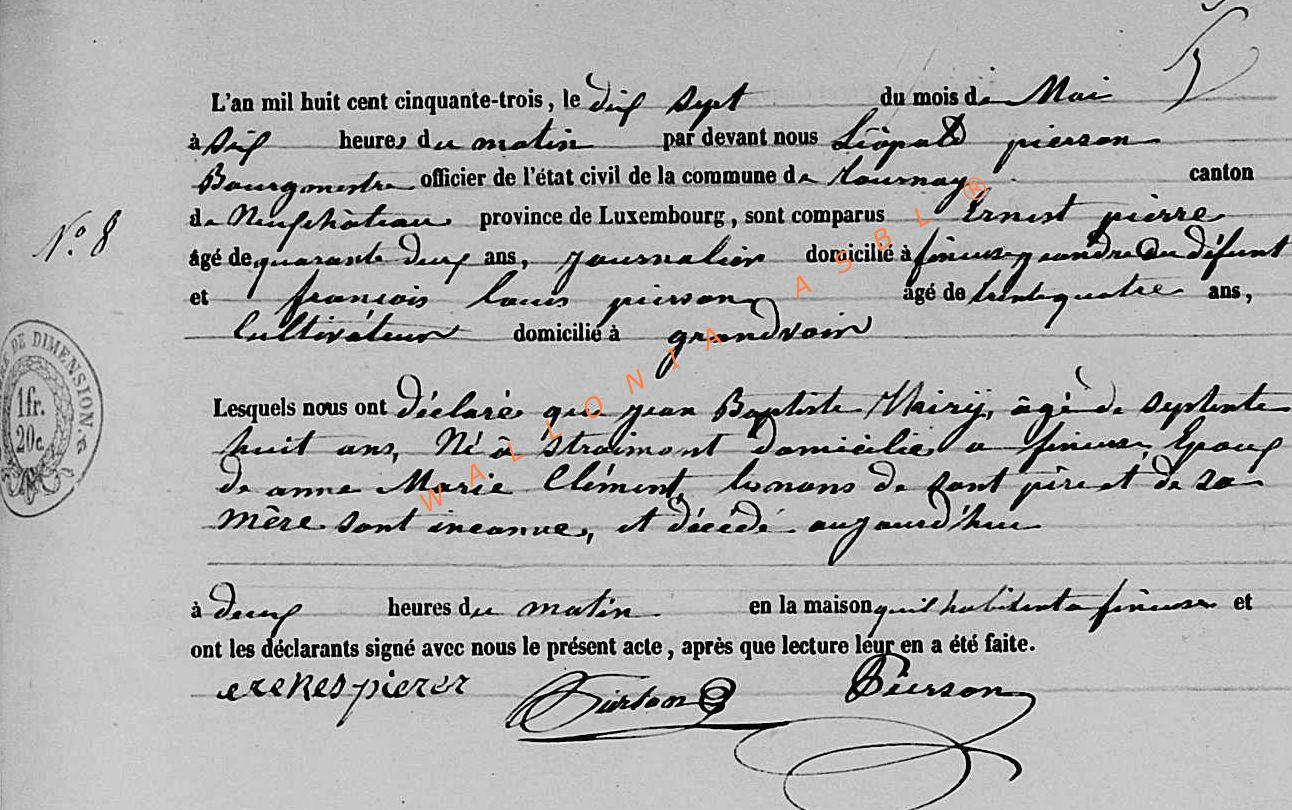 5
L'an mil huit cent cinquante-trois, le dix sept du mois de Mai
à dix heures du matin par devant nous Léopold pierson
Bourgmestre officier de l'état civil de la commune de tournay canton
de Neufchâteau province de Luxembourg, sont comparus Ernest pierre
N.º 8
âgé de quarante deux ans, journalier domicilié à gendre du défunt
et françois louis pierson âgé de trente quatre ans,
Cultivateur domicilié à grandvoir
RE DE DIMENSION
1 fr.
20 c.
Lesquels nous ont déclaré que jean Baptiste âgé de septente
huit ans, Né à straimont domicilié a Epoux
de anne Marie Clément, les noms de sont père et de sa
mère sont inconue, et décédé aujourd'hui
à deux heures du matin en la maison quil habitent a et
ont les déclarants signé avec nous le présent acte, après que lecture leur en a été faite.
pierer Pierson Pierson
WALLONIA ASBL ®